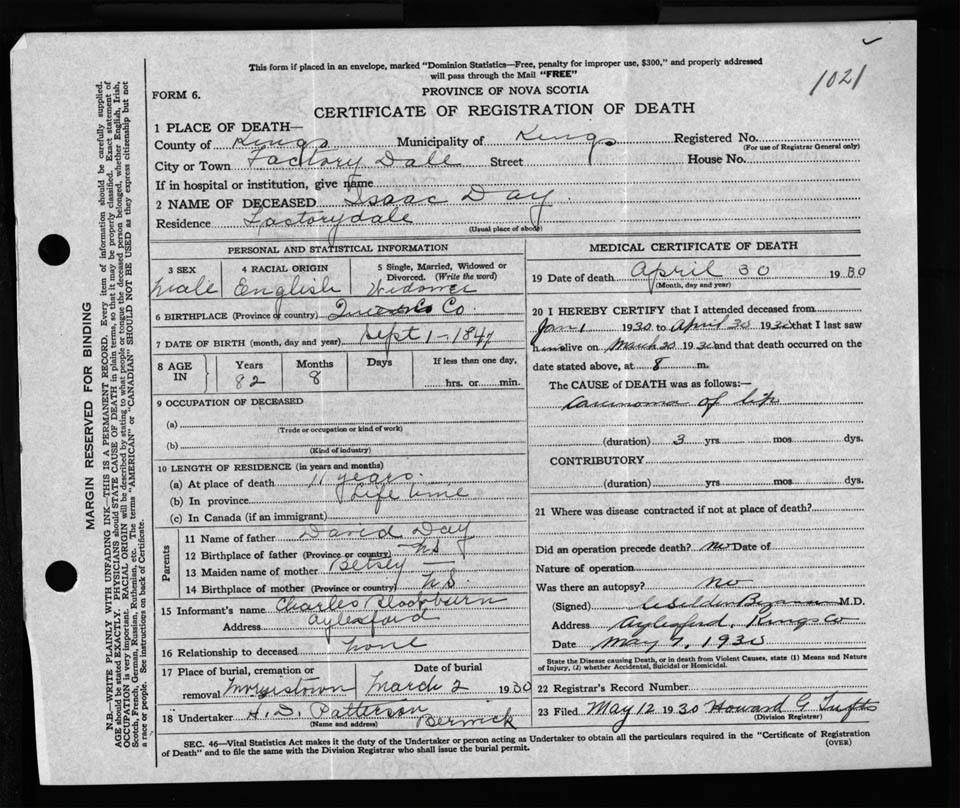 This form if placed in an envelope, marked "Dominion Statistics—Free, penalty for improper use, $300," and properly addressed
will pass through the Mail "FREE"
1021
FORM 6.
PROVINCE OF NOVA SCOTIA
CERTIFICATE OF REGISTRATION OF DEATH
1 PLACE OF DEATH—
County of Kings Municipality of Kings Registered No.
(For use of Registrar General only)
City or Town Factory Dale Street House No.
If in hospital or institution, give name
2 NAME OF DECEASED Isaac Day
Residence Factorydale
(Usual place of abode)
PERSONAL AND STATISTICAL INFORMATION
3 SEX 4 RACIAL ORIGIN 5 Single, Married, Widowed or Divorced. (Write the word)
Male English Widower
6 BIRTHPLACE (Province or country) Co.
7 DATE OF BIRTH (month, day and year) Sept 1 - 1847
8 AGE IN Years Months Days If less than one day,
82 8 hrs. or min.
9 OCCUPATION OF DECEASED
(a)
(Trade or occupation or kind of work)
(b)
(Kind of industry)
10 LENGTH OF RESIDENCE (in years and months)
(a) At place of death 11 years
(b) In province Life time
(c) In Canada (if an immigrant)
Parents
11 Name of father David Day
12 Birthplace of father (Province or country) N.S.
13 Maiden name of mother Betsey —
14 Birthplace of mother (Province or country) N.S.
15 Informant's name Charles
Address Aylesford
16 Relationship to deceased none
17 Place of burial, cremation or removal Morristown Date of burial March 2 1930
18 Undertaker H. D. Patterson Berwick
(Name and address)
MEDICAL CERTIFICATE OF DEATH
19 Date of death April 30 1930
(Month, day and year)
20 I HEREBY CERTIFY that I attended deceased from
Jan 1 1930 to April 30 1930 that I last saw
him alive on March 30 1930 and that death occurred on the
date stated above, at 8 m.
The CAUSE of DEATH was as follows:—
Carcinoma of lip
(duration) 3 yrs. mos. dys.
CONTRIBUTORY
(duration) yrs. mos. dys.
21 Where was disease contracted if not at place of death?
Did an operation precede death? no Date of
Nature of operation
Was there an autopsy? no
(Signed) M.D.
Address Aylesford, Kings Co
Date May 7, 1930
State the Disease causing Death, or in death from Violent Causes, state (1) Means and Nature of Injury, (2) whether Accidental, Suicidal or Homicidal.
22 Registrar's Record Number
23 Filed May 12 1930 Howard G Tufts
(Division Registrar)
SEC. 46—Vital Statistics Act makes it the duty of the Undertaker or person acting as Undertaker to obtain all the particulars required in the "Certificate of Registration
of Death" and to file the same with the Division Registrar who shall issue the burial permit.
(OVER)
MARGIN RESERVED FOR BINDING
N.B.—WRITE PLAINLY WITH UNFADING INK—THIS IS A PERMANENT RECORD. Every item of information should be carefully supplied.
AGE should be stated EXACTLY. PHYSICIANS should STATE CAUSE OF DEATH in plain terms, so that it may be properly classified. Exact statement of
OCCUPATION is very important. RACIAL ORIGIN will be described by stating to what people or tongue the deceased person belonged, whether English, Irish,
Scotch, French, German, Russian, Ruthenian, etc. The terms "AMERICAN" or "CANADIAN" SHOULD NOT BE USED as they express citizenship but not
a race or people. See instructions on back of Certificate.